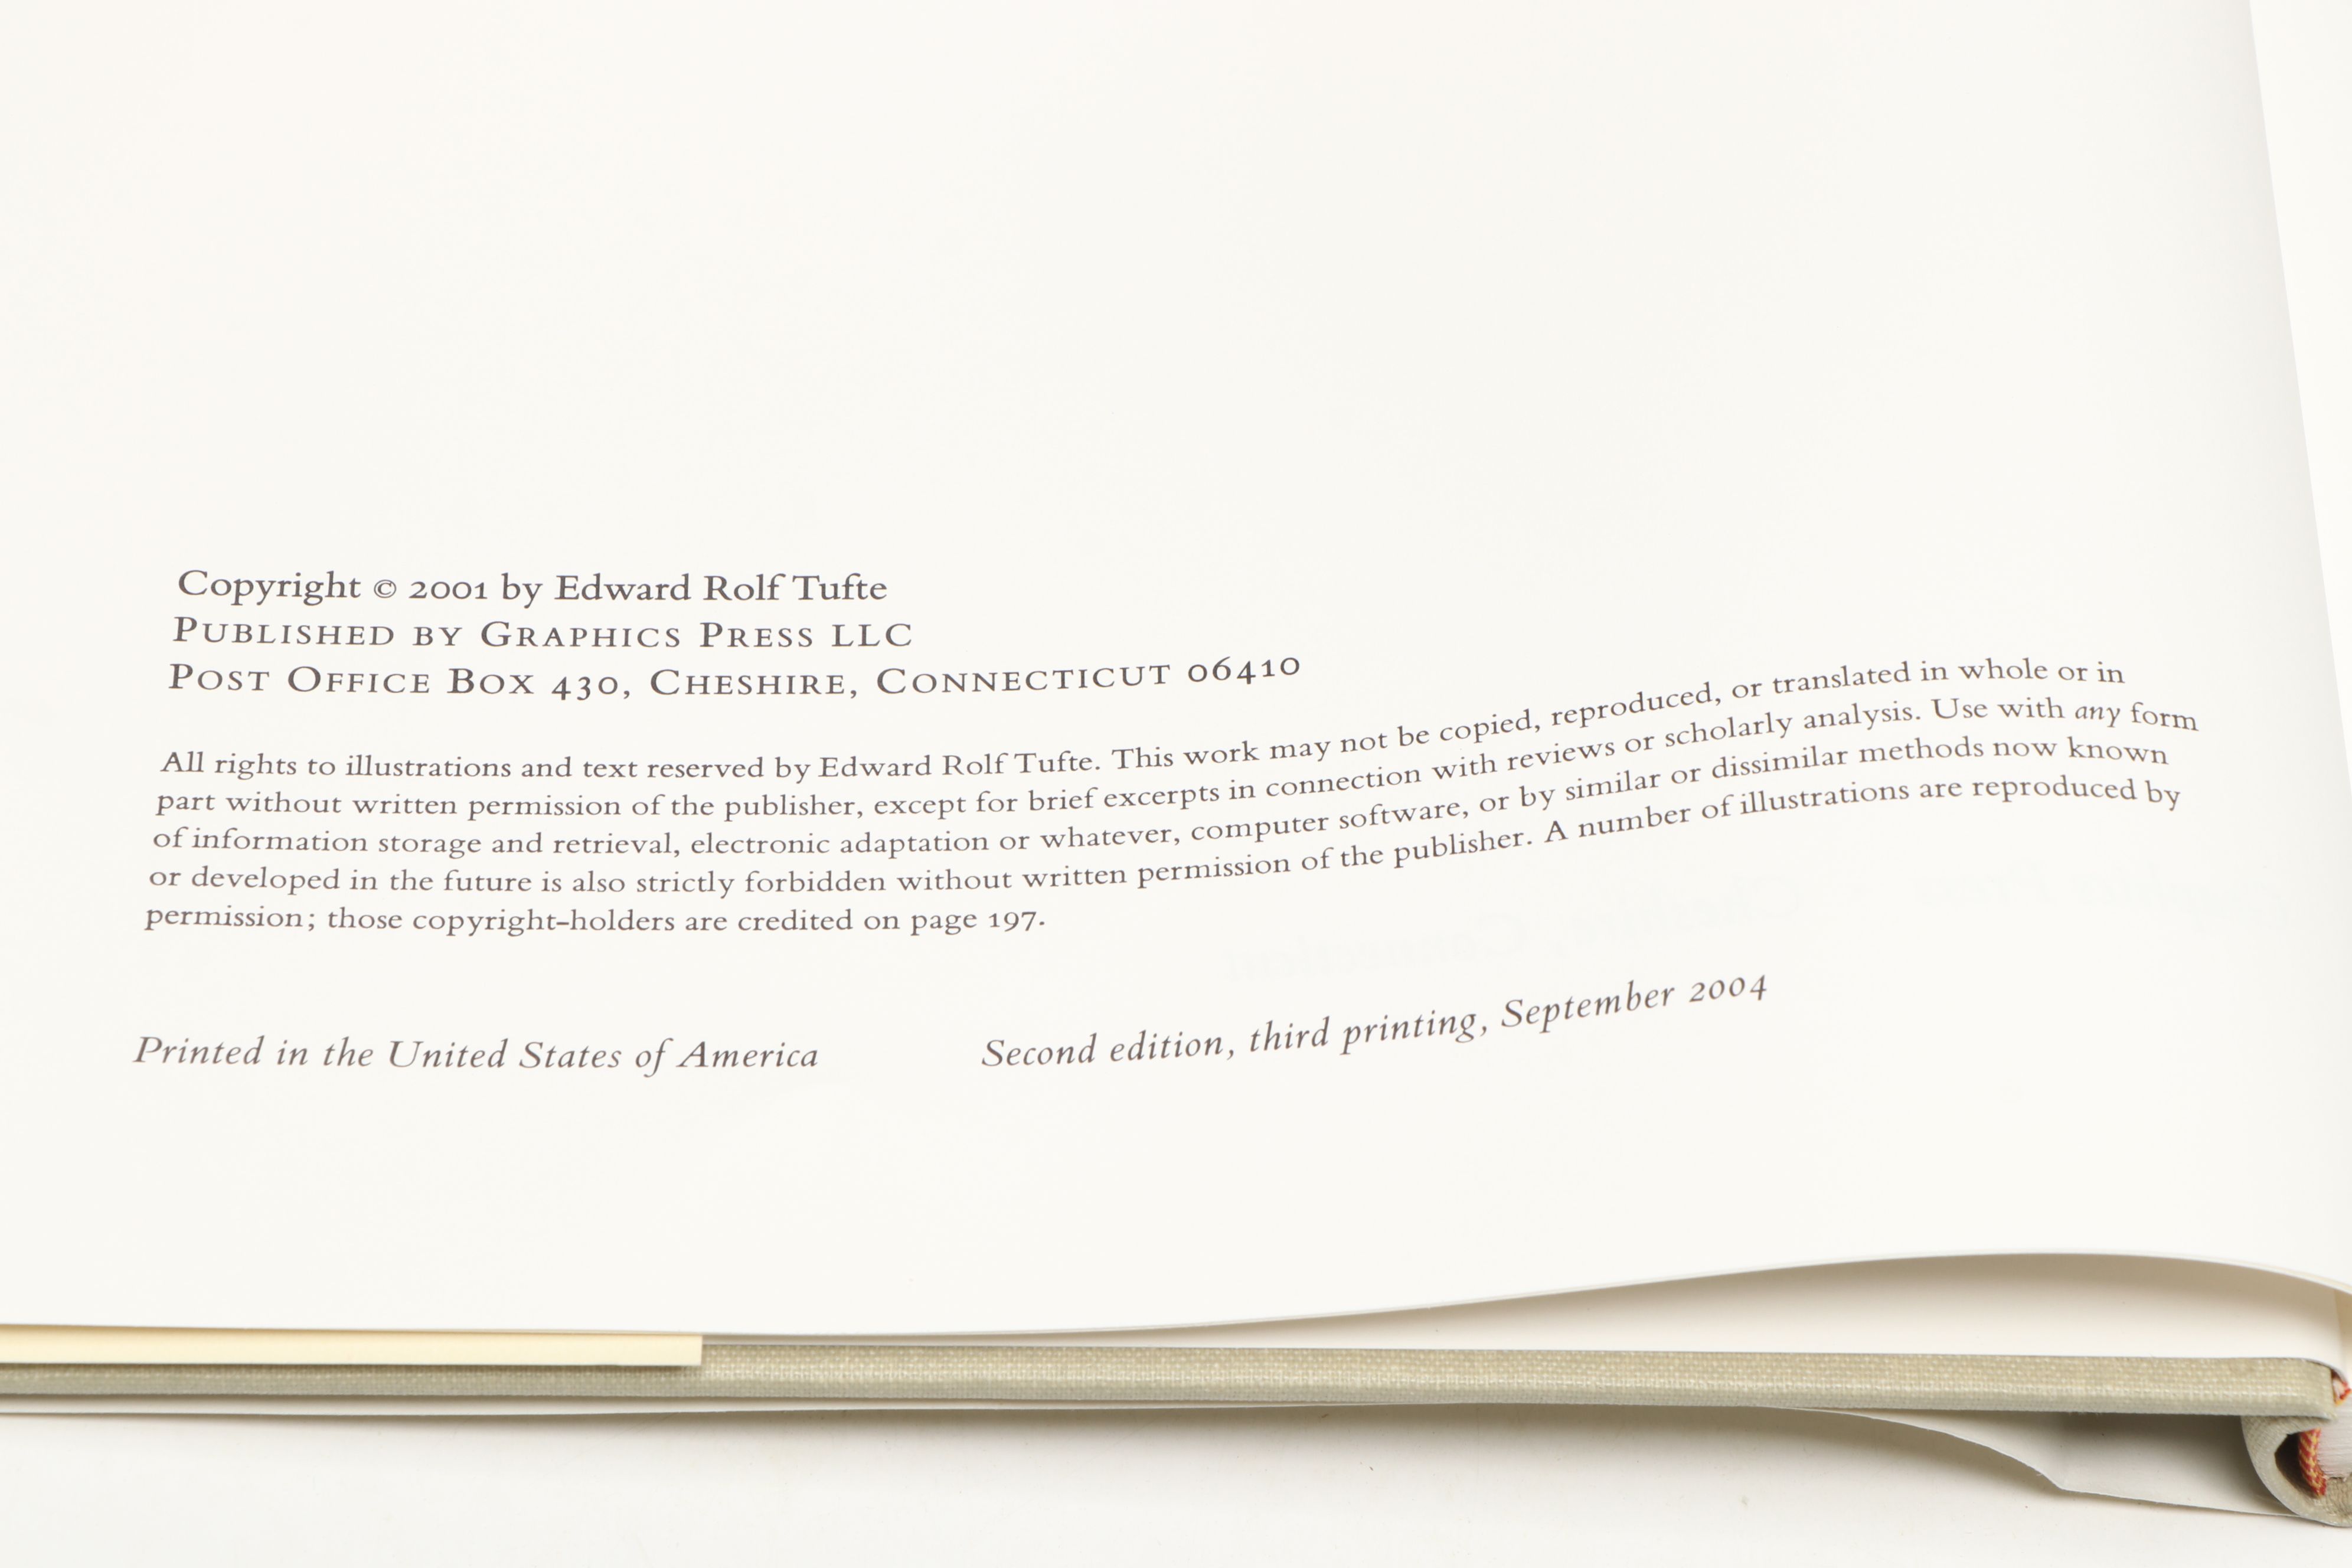 Copyright © 2001 by Edward Rolf Tufte
PUBLISHED BY GRAPHICS PRESS LLC
POST OFFICE BOX 430, CHESHIRE, CONNECTICUT 06410
All rights to illustrations and text reserved by Edward Rolf Tufte. This work may not be copied, reproduced, or translated in whole or in
part without written permission of the publisher, except for brief excerpts in connection with reviews or scholarly analysis. Use with any form
of information storage and retrieval, electronic adaptation or whatever, computer software, or by similar or dissimilar methods now known
or developed in the future is also strictly forbidden without written permission of the publisher. A number of illustrations are reproduced by
permission; those copyright-holders are credited on page 197.
Printed in the United States of America
Second edition, third printing, September 2004